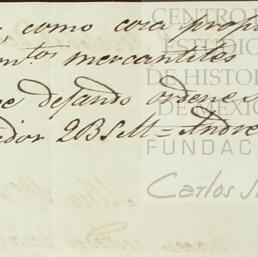 como cosa propi
mtos mercantiles
dejando ordenes
dor 2BSM = Andre
CENTRO
ESTUDIO
DE HISTO
DE MEXIC
FUNDAC
Carlos S